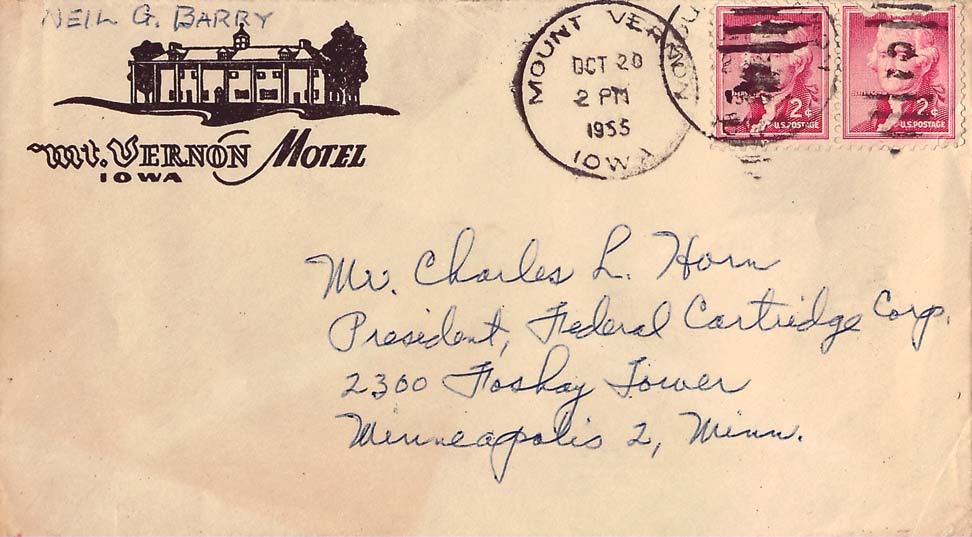 NEIL G. BARRY
Mt. VERNON MOTEL
IOWA
MOUNT VERNON
OCT 20
2 PM
1955
IOWA
2¢
U.S. POSTAGE
2¢
U.S. POSTAGE
Mr. Charles L. Horn
President, Federal Cartridge Corp.
2300 Foshay Tower
Minneapolis 2, Minn.